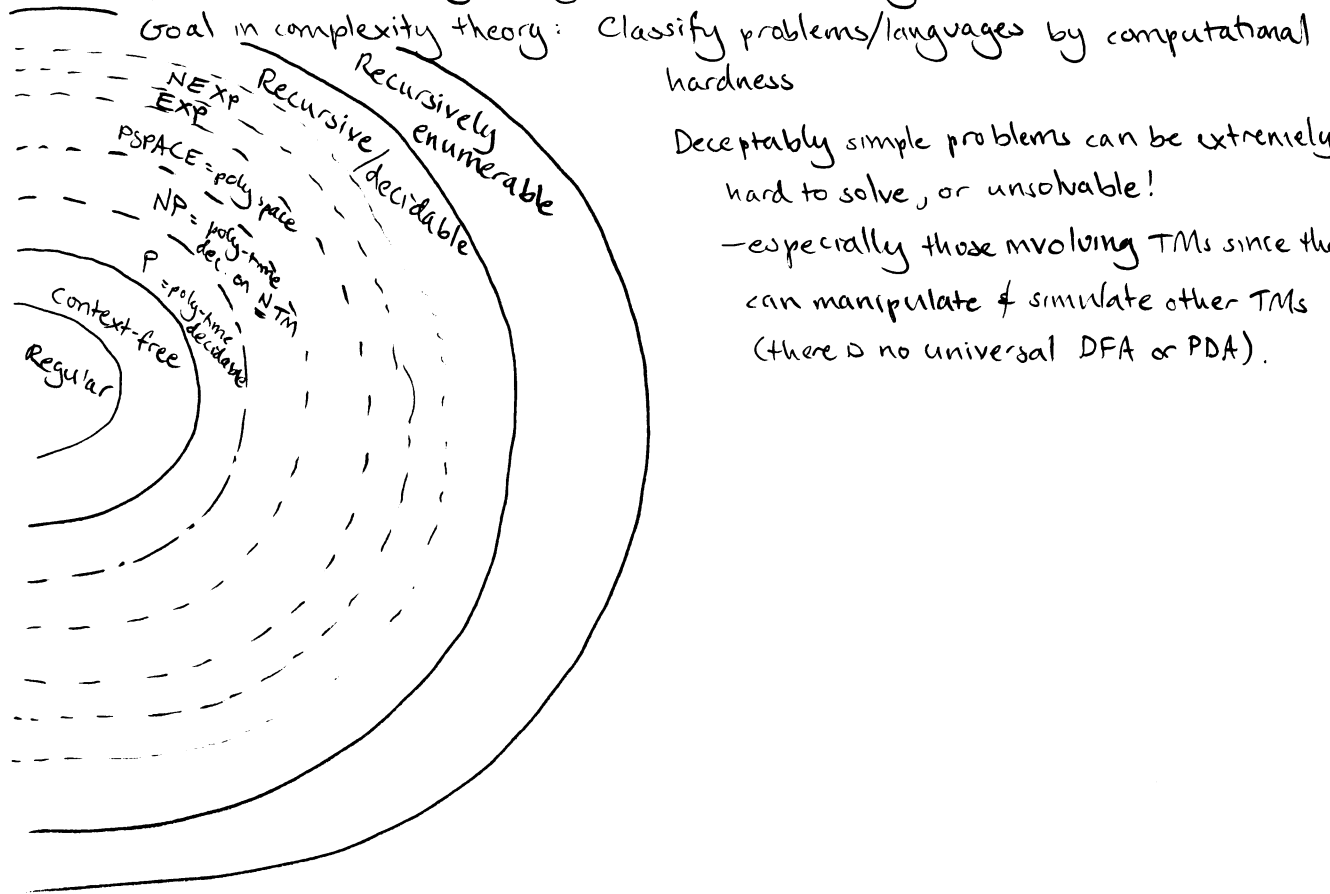 Goal in complexity theory: Classify problems/languages by computational
hardness
Deceptably simple problems can be extremely
hard to solve, or unsolvable!
—especially those involving TMs since the
can manipulate & simulate other TMs
(there is no universal DFA or PDA).
Recursively
enumerable
Recursive/decidable
NEXP
EXP
PSPACE = poly space
NP = poly-time
dec. on NTM
P
=poly-time
decidable
Context-free
Regular